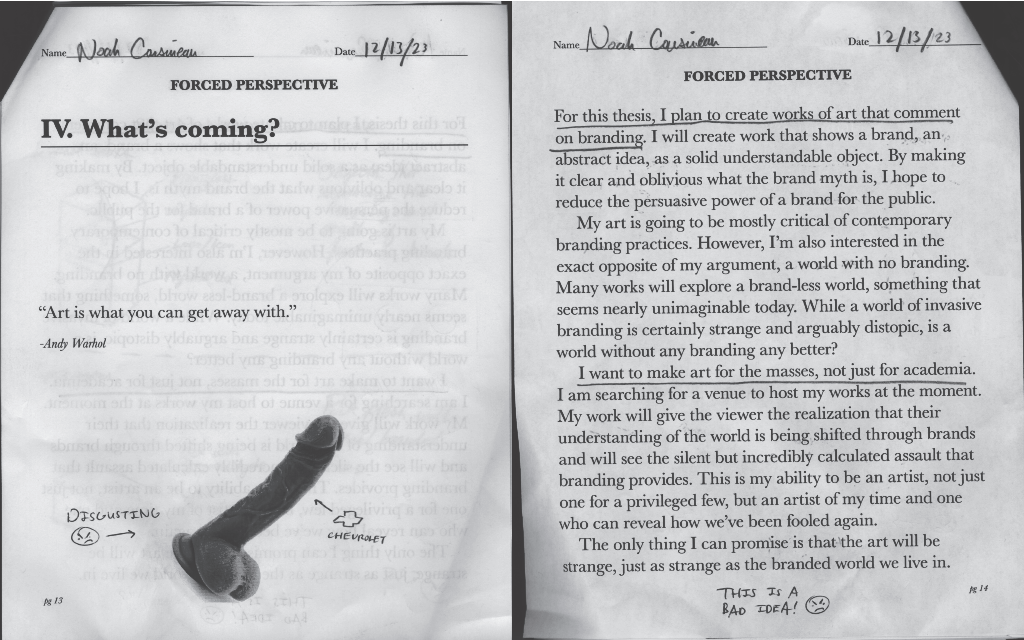 Name Noah Cousineau Date 12/13/23
FORCED PERSPECTIVE
IV. What's coming?
“Art is what you can get away with.”
-Andy Warhol
DISGUSTING
CHEVROLET
pg 13
Name Noah Cousineau Date 12/13/23
FORCED PERSPECTIVE
For this thesis, I plan to create works of art that comment
on branding. I will create work that shows a brand, an
abstract idea, as a solid understandable object. By making
it clear and oblivious what the brand myth is, I hope to
reduce the persuasive power of a brand for the public.
My art is going to be mostly critical of contemporary
branding practices. However, I'm also interested in the
exact opposite of my argument, a world with no branding.
Many works will explore a brand-less world, something that
seems nearly unimaginable today. While a world of invasive
branding is certainly strange and arguably distopic, is a
world without any branding any better?
I want to make art for the masses, not just for academia.
I am searching for a venue to host my works at the moment.
My work will give the viewer the realization that their
understanding of the world is being shifted through brands
and will see the silent but incredibly calculated assault that
branding provides. This is my ability to be an artist, not just
one for a privileged few, but an artist of my time and one
who can reveal how we've been fooled again.
The only thing I can promise is that the art will be
strange, just as strange as the branded world we live in.
THIS IS A
BAD IDEA!
pg 14